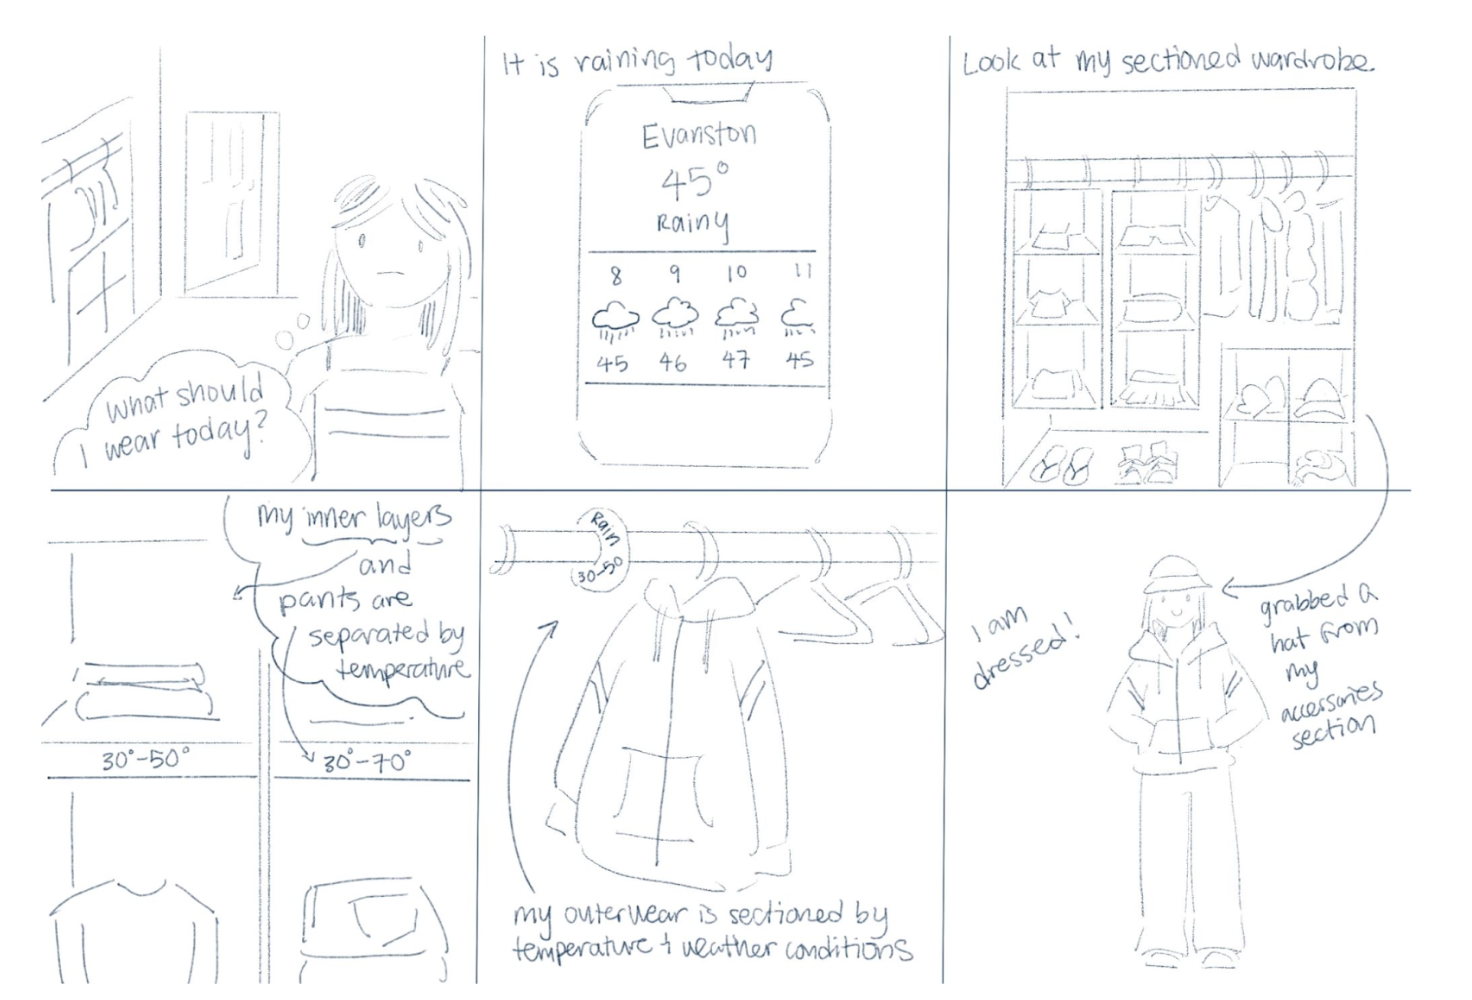 What should
I wear today?
It is raining today
Evanston
45°
Rainy
8 9 10 11
45 46 47 45
Look at my sectioned wardrobe.
my inner layers
and
pants are
separated by
temperature
30°-50°
30°-70°
Rain
30-50
my outerwear is sectioned by
temperature + weather conditions
I am
dressed!
grabbed a
hat from
my
accessories
section